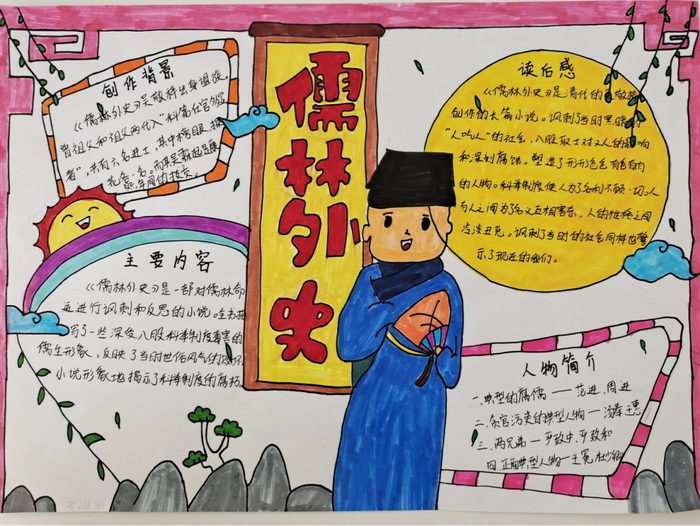 儒林外史
创作背景
《儒林外史》吴敬梓出身望族。
曾祖父和祖父两代人“科第仕宦多显
者”，共有六名进士，其中榜眼、探
花各一名。而其吴霖起是康
熙年间的拔贡。
主要内容
《儒林外史》是一部对儒林
进行讽刺和反思的小说。全书描
写了一些深受八股科举制度毒害的
儒生形象，反映了当时世俗风气的
小说形象地揭示了科举制度的腐
读后感
《儒林外史》是清代的吴敬梓
创作的长篇小说。讽刺了当时黑暗的
“人吃人”的社会，八股取士对文人的影响
和深刻腐蚀。塑造了形形色色有名有姓
的人物。科举制度使人为了名利不顾一切。人
与人之间为了名义互相害，人的性格之间
当时的社会同样也警
示了现在的我们。
人物简介
一、典型的腐儒——范进、周进
二、贪官污吏的典型人物——汤奉、王惠
三、两兄弟——严致中、严致和
四、正面典型人物——王冕、杜少卿